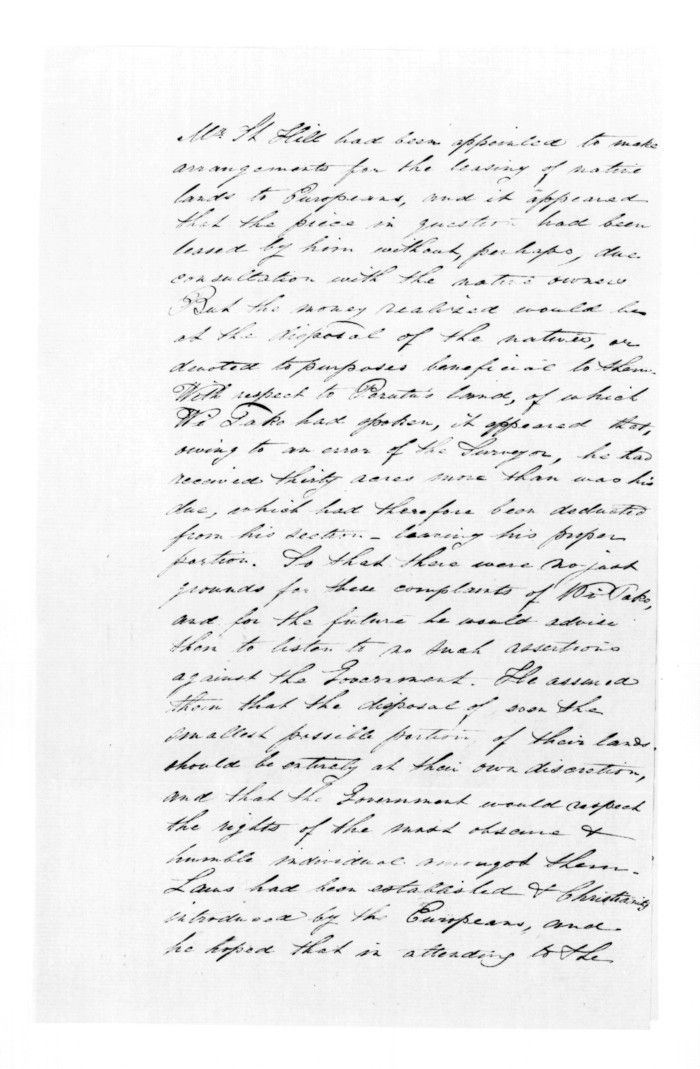 Mr. St Hill had been appointed to make
arrangements for the leasing of native
lands to Europeans, and it appeared
that the piece in question had been
leased by him without, perhaps, due
consultation with the native owners
But the money realized would be
at the disposal of the natives, or
devoted to purposes beneficial to them.
With respect to Porutu's land, of which
Wi Tako had spoken, it appeared that,
owing to an error of the Surveyor, he had
received thirty acres more than was his
due, which had therefore been deducted
from his section - leaving his proper
portion. So that there were no just
grounds for these complaints of Wi Tako,
and for the future he would advise
them to listen to no such assertions
against the Government. He assured
them that the disposal of even the
smallest possible portion of their lands
should be entirely at their own discretion,
and that the Government would respect
the rights of the most obscure &
humble individual amongst them.
Laws had been established & Christianity
introduced by the Europeans, and
he hoped that in attending to the